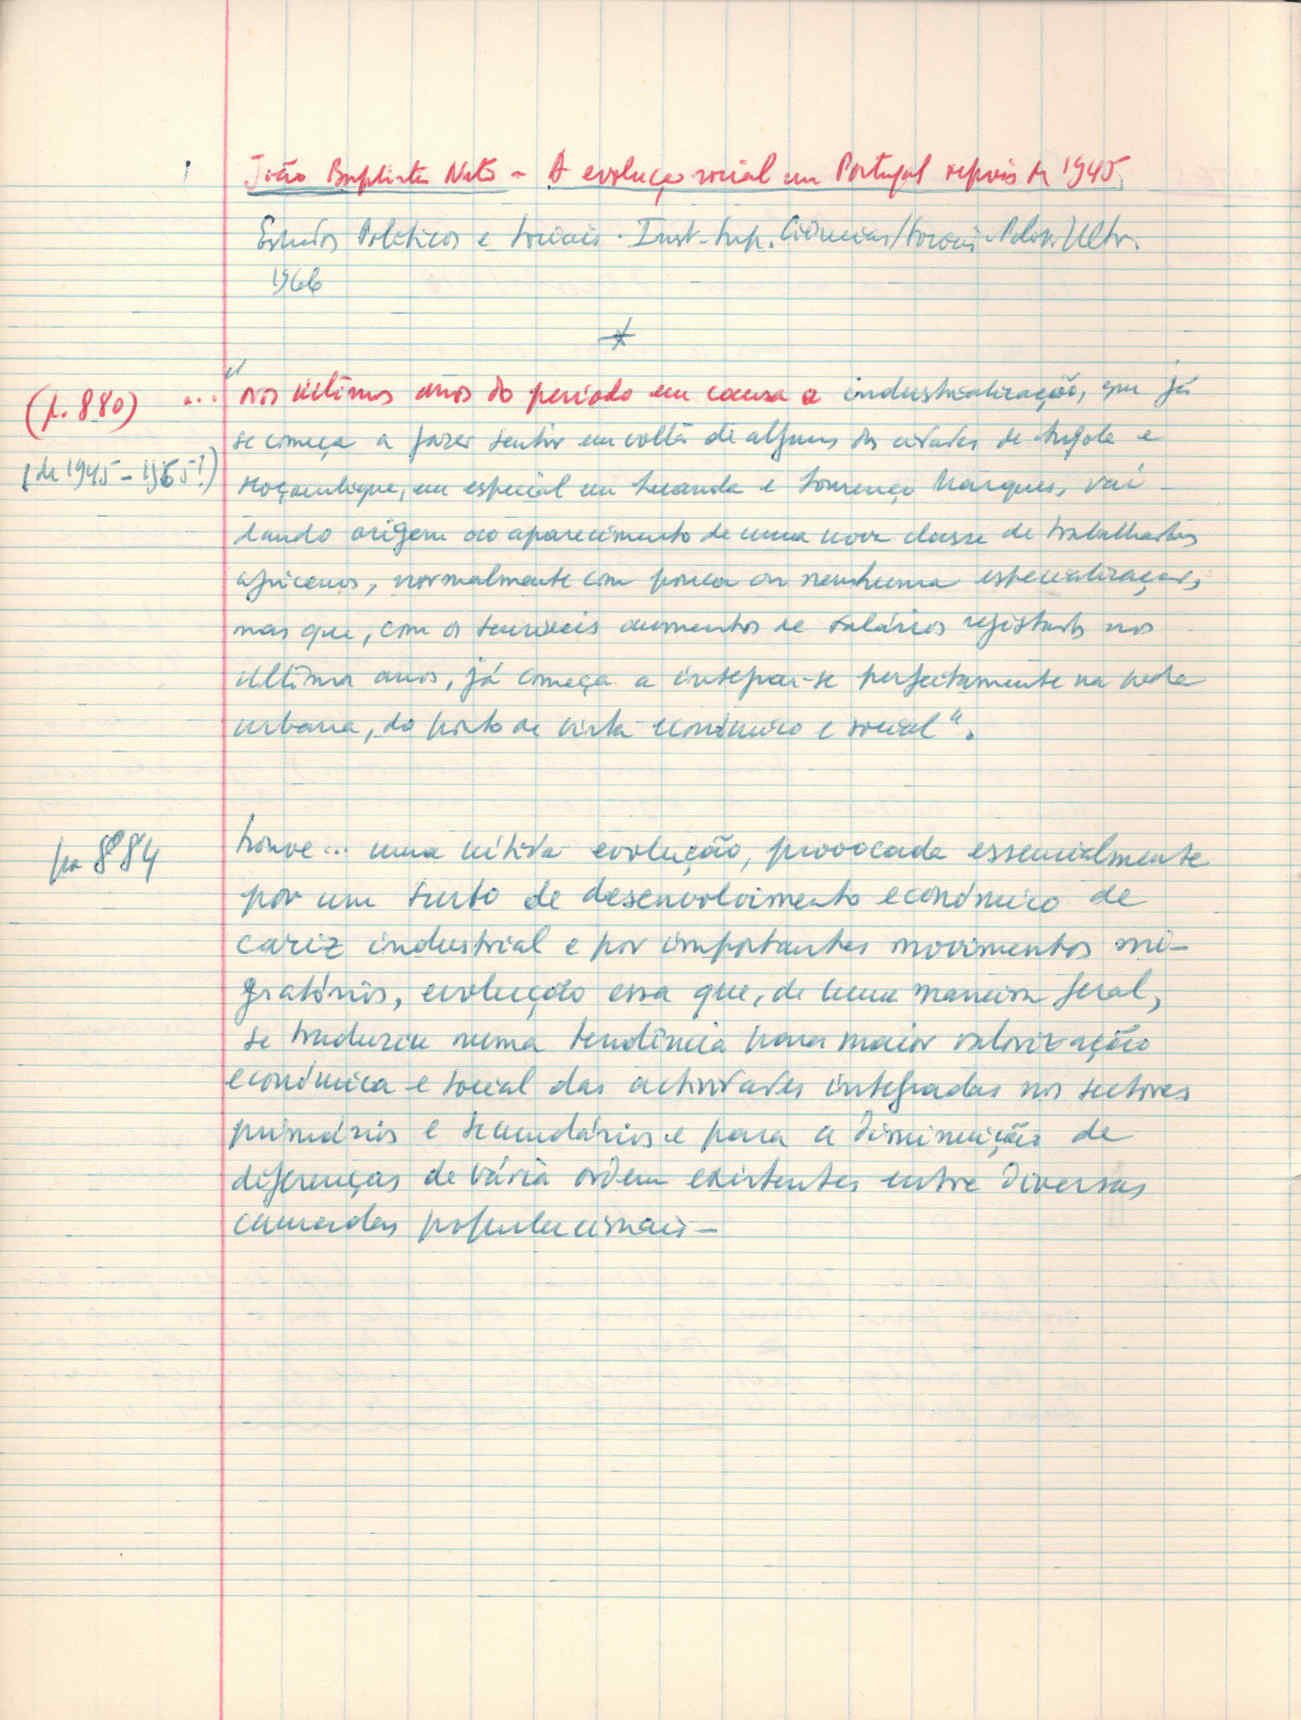 João Baptista Neto - A evolução social em Portugal depois de 1945.
Estudos Politicos e Sociais. Inst. Sup. Ciências Sociais Polit. Ultr.
1966
(p. 880) ... "nos últimos anos do período em causa a industrialização, que já
(de 1945-1965!) se começa a fazer sentir em volta de algumas das cidades de Angola e
Moçambique, em especial em Luanda e Lourenço Marques, vai
dando origem ao aparecimento de uma nova classe de trabalhadores
africanos, normalmente com pouca ou nenhuma especialização,
mas que, com os sensíveis aumentos de salários registados nos
últimos anos, já começa a integrar-se perfeitamente na vida
urbana, do ponto de vista económico e social".
pa 884 houve... uma nítida evolução, provocada essencialmente
por um surto de desenvolvimento económico de
cariz industrial e por importantes movimentos mi-
gratórios, evolução essa que, de uma maneira geral,
se traduziu numa tendência para maior valorização
económica e social das actividades integradas nos sectores
primários e secundários e para a diminuição de
diferenças de vária ordem existentes entre diversas
camadas populacionais -